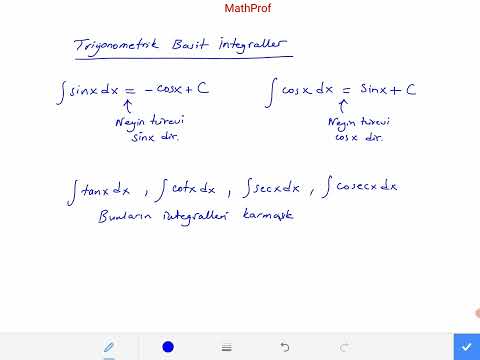 MathProf
Trigonometrik Basit integraller
∫sinx dx = -cosx + C
Neyin türevi
sinx dir.
∫cosx dx = Sinx + C
Neyin türevi
cosx dir.
∫tanx dx , ∫cotx dx , ∫secx dx , ∫cosecx dx
Bunların integralleri karmaşık